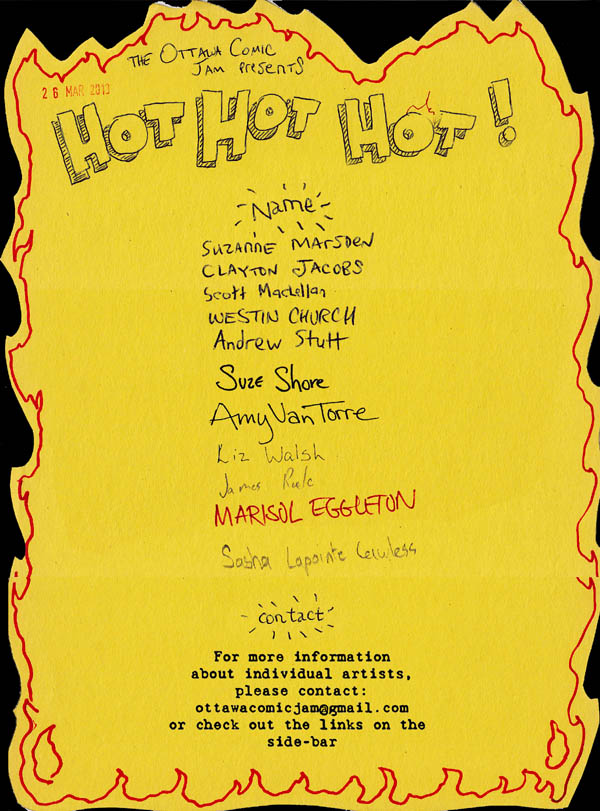 THE OTTAWA COMIC
JAM PRESENTS
26 MAR 2013
HOT HOT HOT!
Name
SUZANNE MARSDEN
CLAYTON JACOBS
Scott Maclellan
WESTIN CHURCH
Andrew Stutt
Suze Shore
Amy Van Torre
Liz Walsh
James
MARISOL EGGLETON
Sasha Lapointe
contact
For more information
about individual artists,
please contact:
ottawacomicjam@gmail.com
or check out the links on the
side-bar